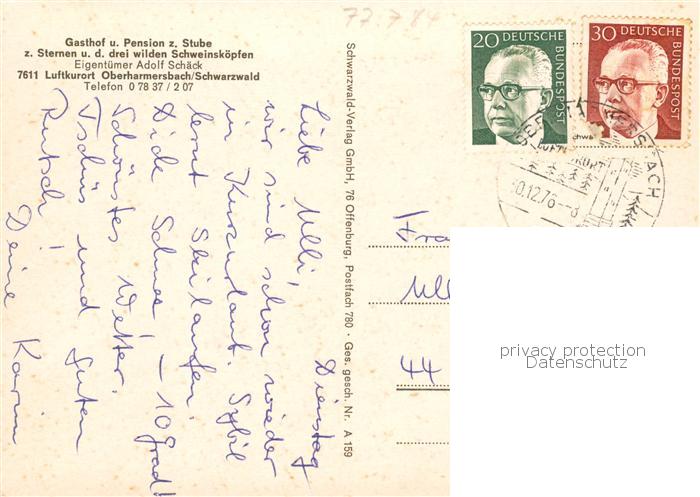 72.784
Gasthof u. Pension z. Stube
z. Sternen u. d. drei wilden Schweinsköpfen
Eigentümer Adolf Schäck
7611 Luftkurort Oberharmersbach/Schwarzwald
Telefon 0 78 37 / 2 07
Dienstag
Liebe Ulli!
wir sind schon wieder
in Kurzurlaub. Sybil
lernt Skilaufen.
Dick Schnee – 10 Grad!
Schönstes Wetter.
Tschüs und guten
Rutsch!
Deine Karin
Schwarzwald-Verlag GmbH, 76 Offenburg, Postfach 780 · Ges. gesch. Nr. A 159
20 DEUTSCHE BUNDESPOST
30 DEUTSCHE BUNDESPOST
0.12.76-8
Fra
Ull
44
privacy protection
Datenschutz